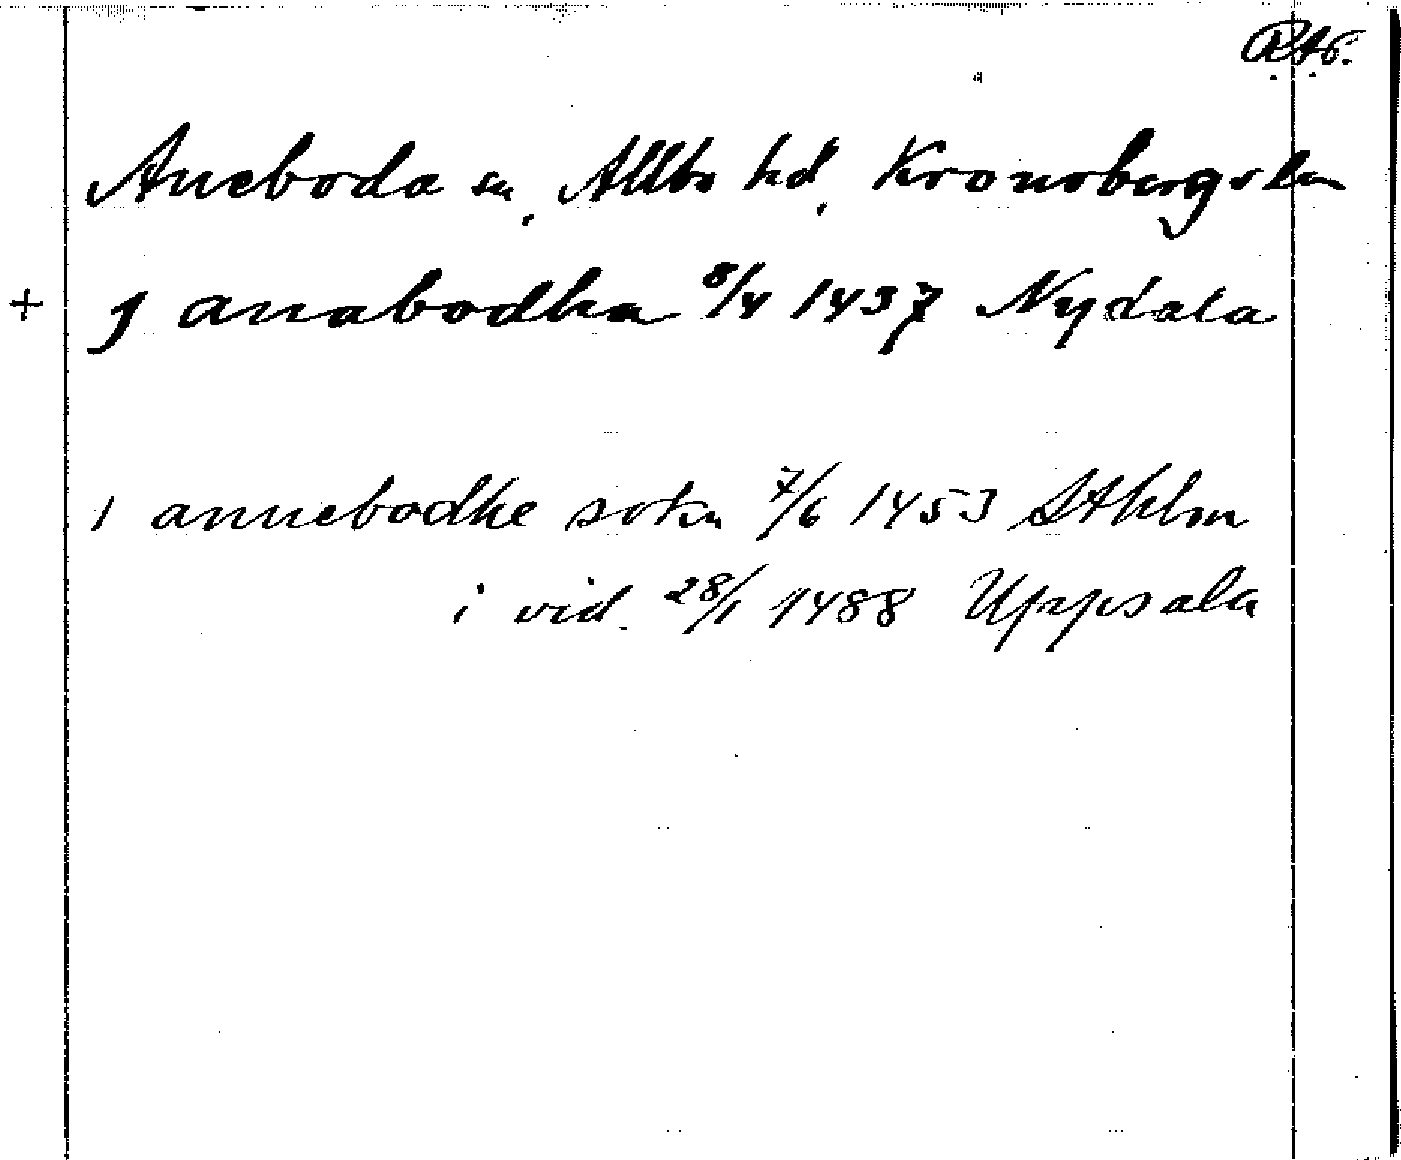 RAp.
Aneboda sn, Allbo hd, Kronobergs län
+ J anabodha 8/4 1437 Nydala
i annebodhe sokn 7/6 1453 Sthlm
i vid. 28/1 1488 Uppsala